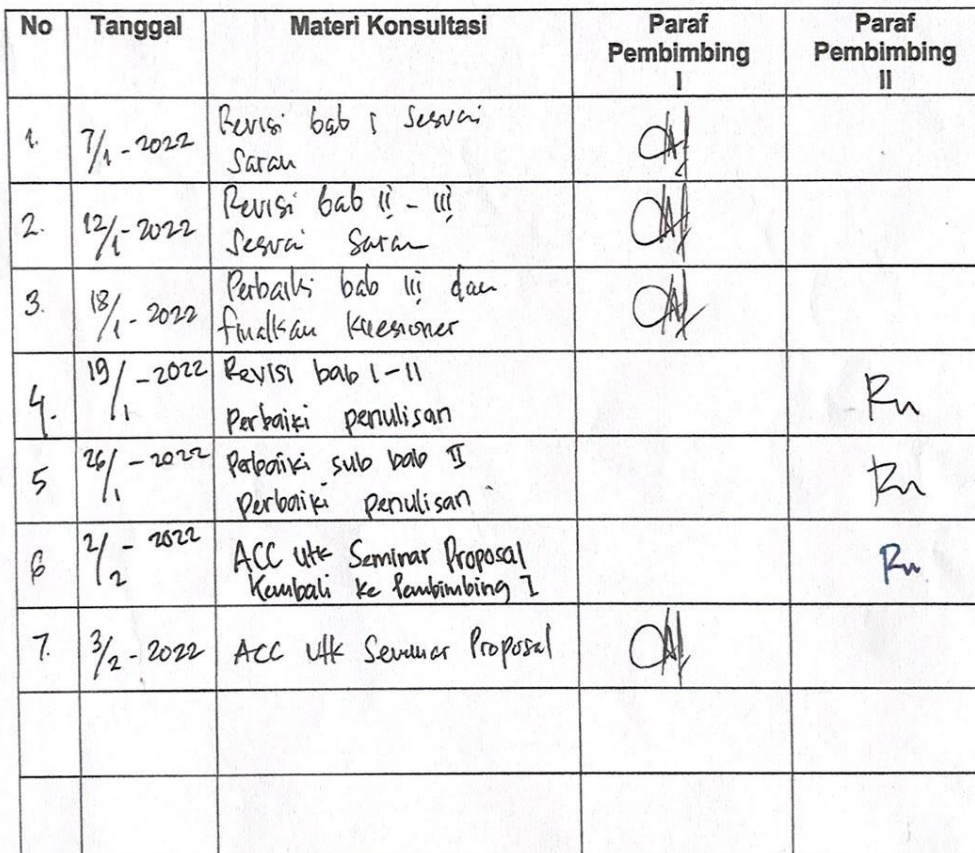 No Tanggal Materi Konsultasi Paraf Pembimbing I Paraf Pembimbing II
1. 7/1 - 2022 Revisi bab I Sesuai
Saran
2. 12/1 - 2022 Revisi bab II - III
Sesuai Saran
3. 18/1 - 2022 Perbaiki bab III dan
finalkan kuesioner
4. 19/1 - 2022 Revisi bab I - II
Perbaiki penulisan
5 26/1 - 2022 Perbaiki sub bab II
Perbaiki penulisan
6 2/2 - 2022 ACC utk Seminar Proposal
Kembali ke Pembimbing I
7. 3/2 - 2022 ACC utk Seminar Proposal